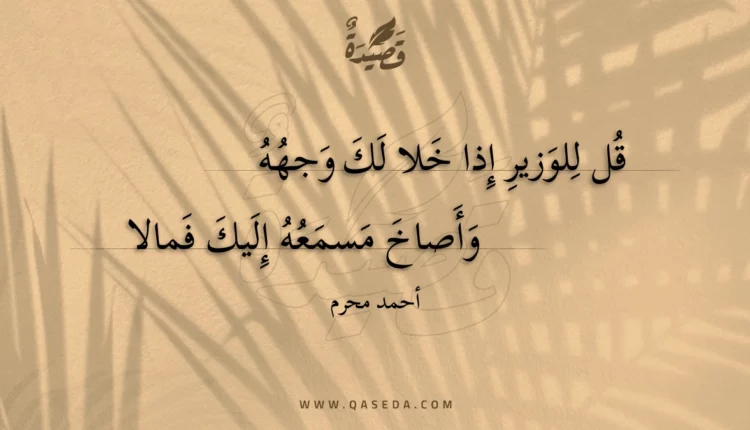 قَصِيْدَةٌ
قُل لِلوَزيرِ إِذا خَلا لَكَ وَجهُهُ
وَأَصاخَ مَسمَعُهُ إِلَيكَ فَمالا
أحمد محرم
WWW.QASEDA.COM